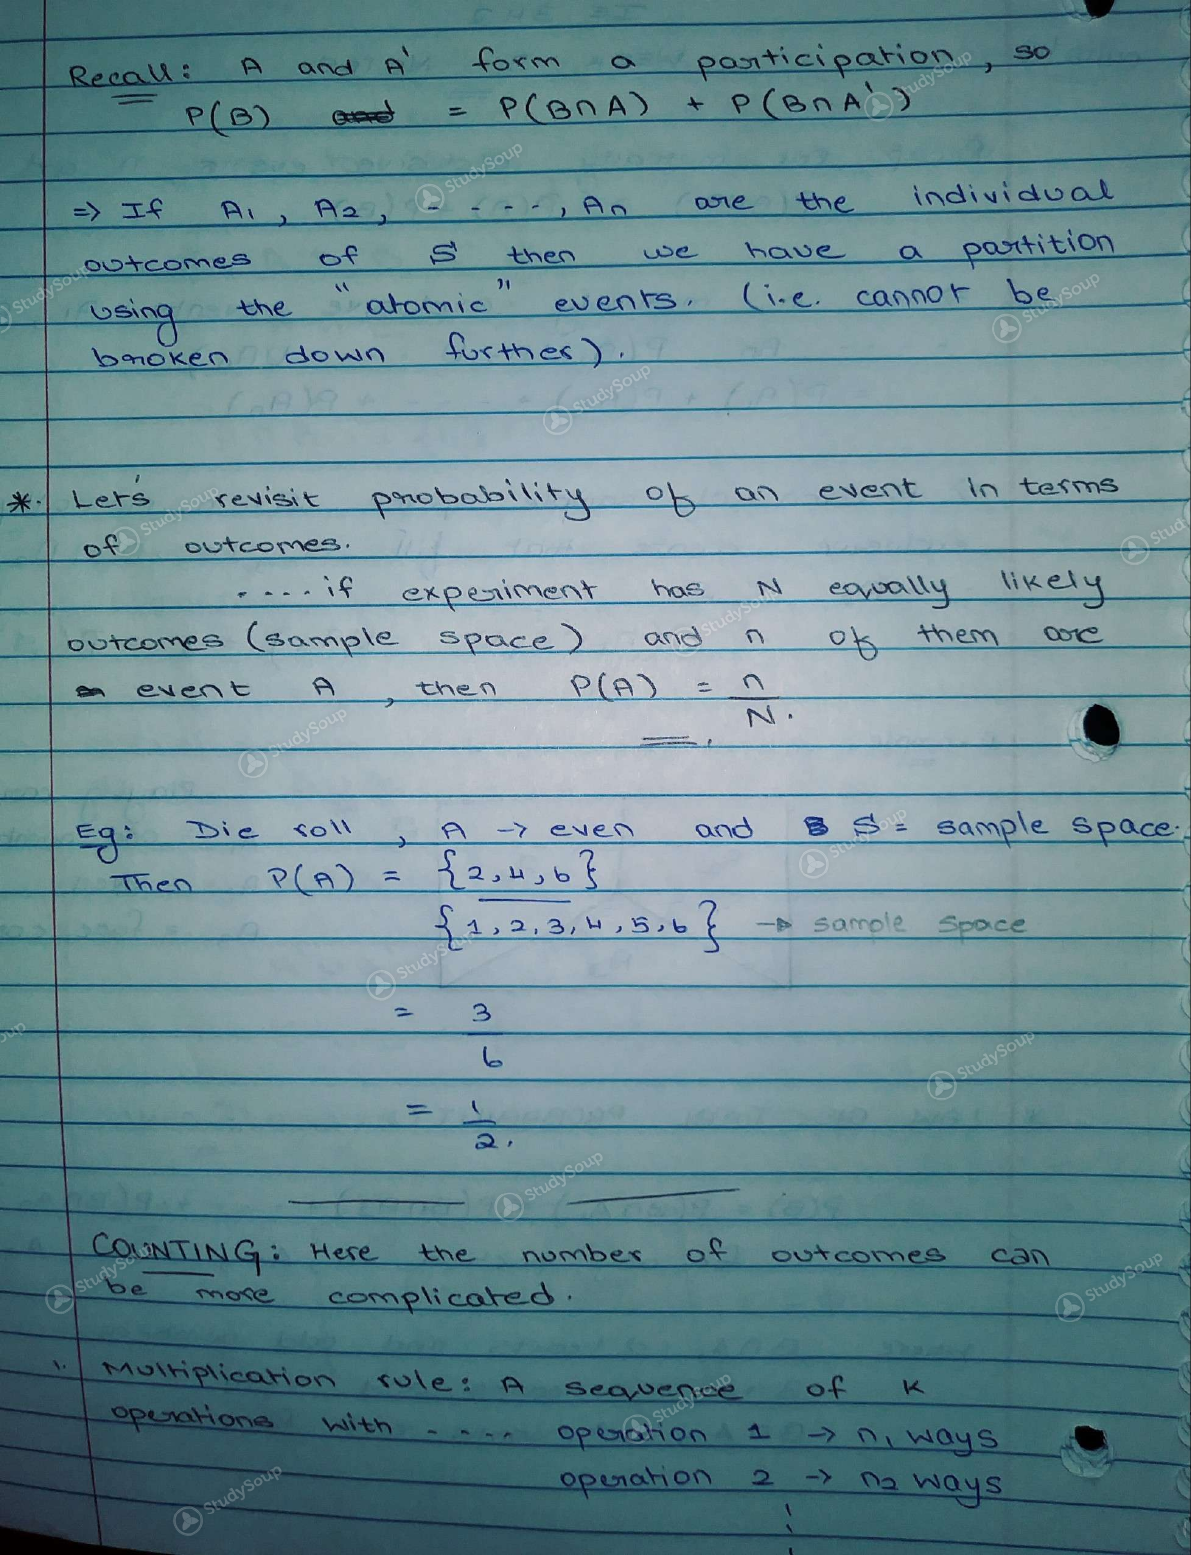 Recall: A and A' form a participation, so
P(B) = P(B∩A) + P(B∩A')
=> If A1, A2, - - - -, An are the individual
outcomes of S then we have a partition
using the "atomic" events. (i.e. cannot be
broken down further).
*. Let's revisit probability of an event in terms
of outcomes.
....if experiment has N equally likely
outcomes (sample space) and n of them are
event A, then P(A) = n
N.
Eg: Die roll, A → even and S = sample space.
Then P(A) = {2,4,6}
{1,2,3,4,5,6} → sample space
= 3
6
= 1
2.
COUNTING: Here the number of outcomes can
be more complicated.
1. Multiplication rule: A sequence of K
operations with - - - - operation 1 → n1 ways
operation 2 → n2 ways
StudySoup